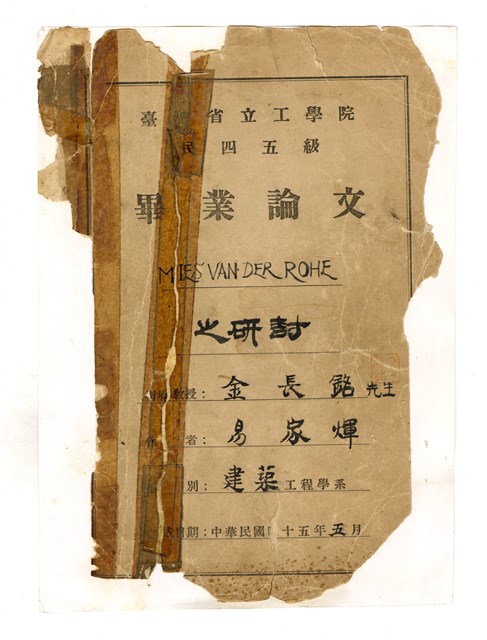 臺 省立工學院
民四五級
畢業論文
MIES VAN DER ROHE
之研討
教授：金長銘先生
者：易家煇
別：建築工程學系
期：中華民國 十五年五月